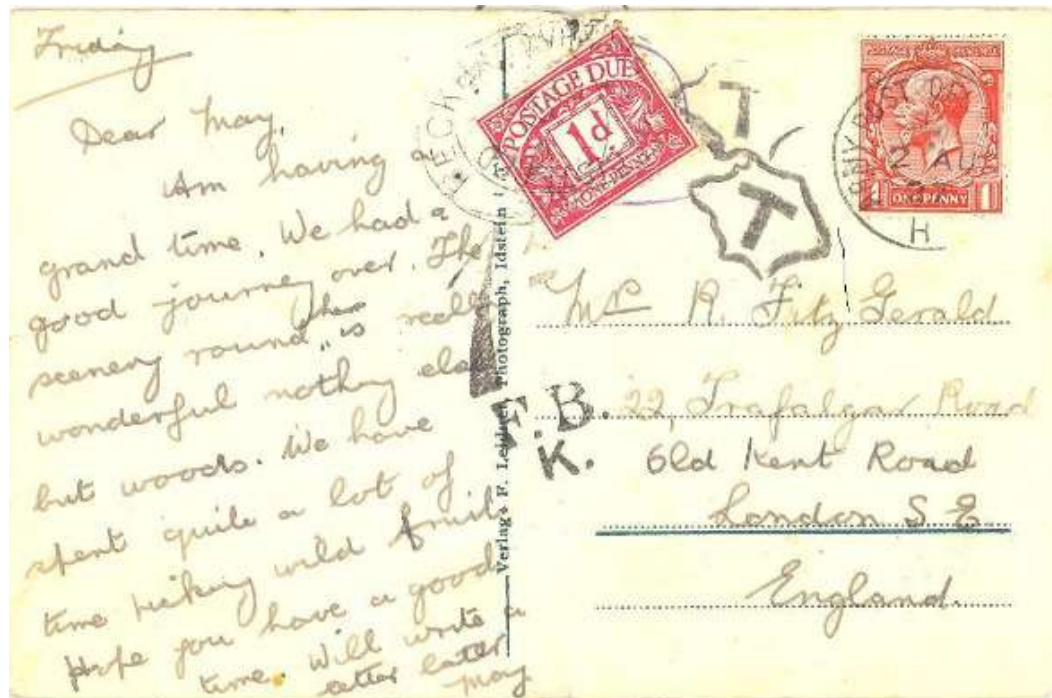 Friday
Dear May,
Am having a
grand time. We had a
good journey over. The
scenery round here is really
wonderful nothing else
but woods. We have
spent quite a lot of
time picking wild fruit
Hope you have a good
time. Will write a
letter later
May
Verlag: F. Leidner, Photograph, Idstein i. T.
PECKHAM
POSTAGE DUE
1d
ONE PENNY
T
T
1
F.B.
K.
POSTAGE REVENUE
1 ONE PENNY 1
ARMY POST OFFICE
2 AU
H
Mrs R. Fitz Gerald
22, Trafalgar Road
Old Kent Road
London S E
England.